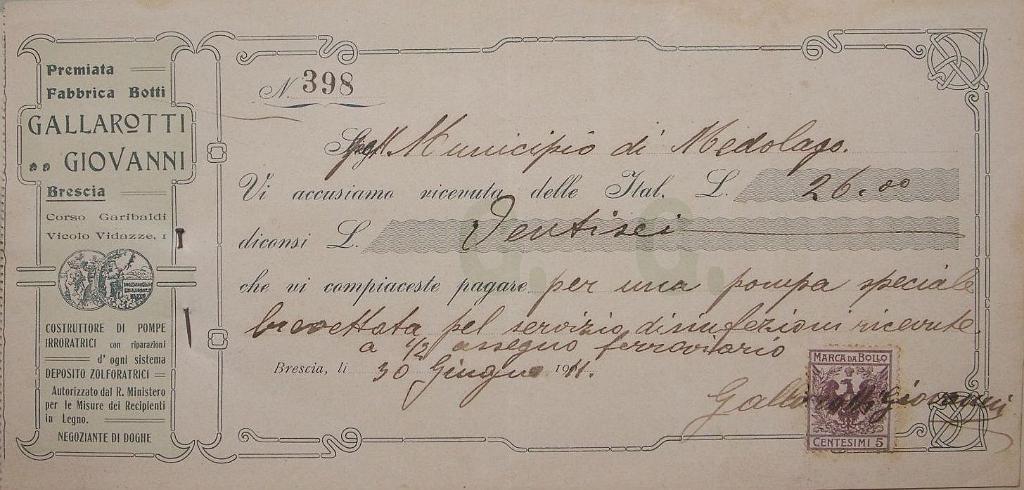 Premiata
Fabbrica Botti
GALLAROTTI
GIOVANNI
Brescia
Corso Garibaldi
Vicolo Vidazze, 1
COSTRUTTORE DI POMPE
IRRORATRICI con riparazioni
d' ogni sistema
DEPOSITO ZOLFORATRICI
Autorizzato dal R. Ministero
per le Misure dei Recipienti
in Legno.
NEGOZIANTE DI DOGHE
N. 398
Municipio di Medolago.
Vi accusiamo ricevuta delle Ital. L. 26.00
diconsi L. Ventisei
G. G.
che vi compiaceste pagare per una pompa speciale
brevettata pel servizio disinfezioni ricevute
a 1/2 assegno ferroviario
Brescia, li 30 Giugno 1911.
Gallarotti Giovanni
MARCA DA BOLLO
CENTESIMI 5